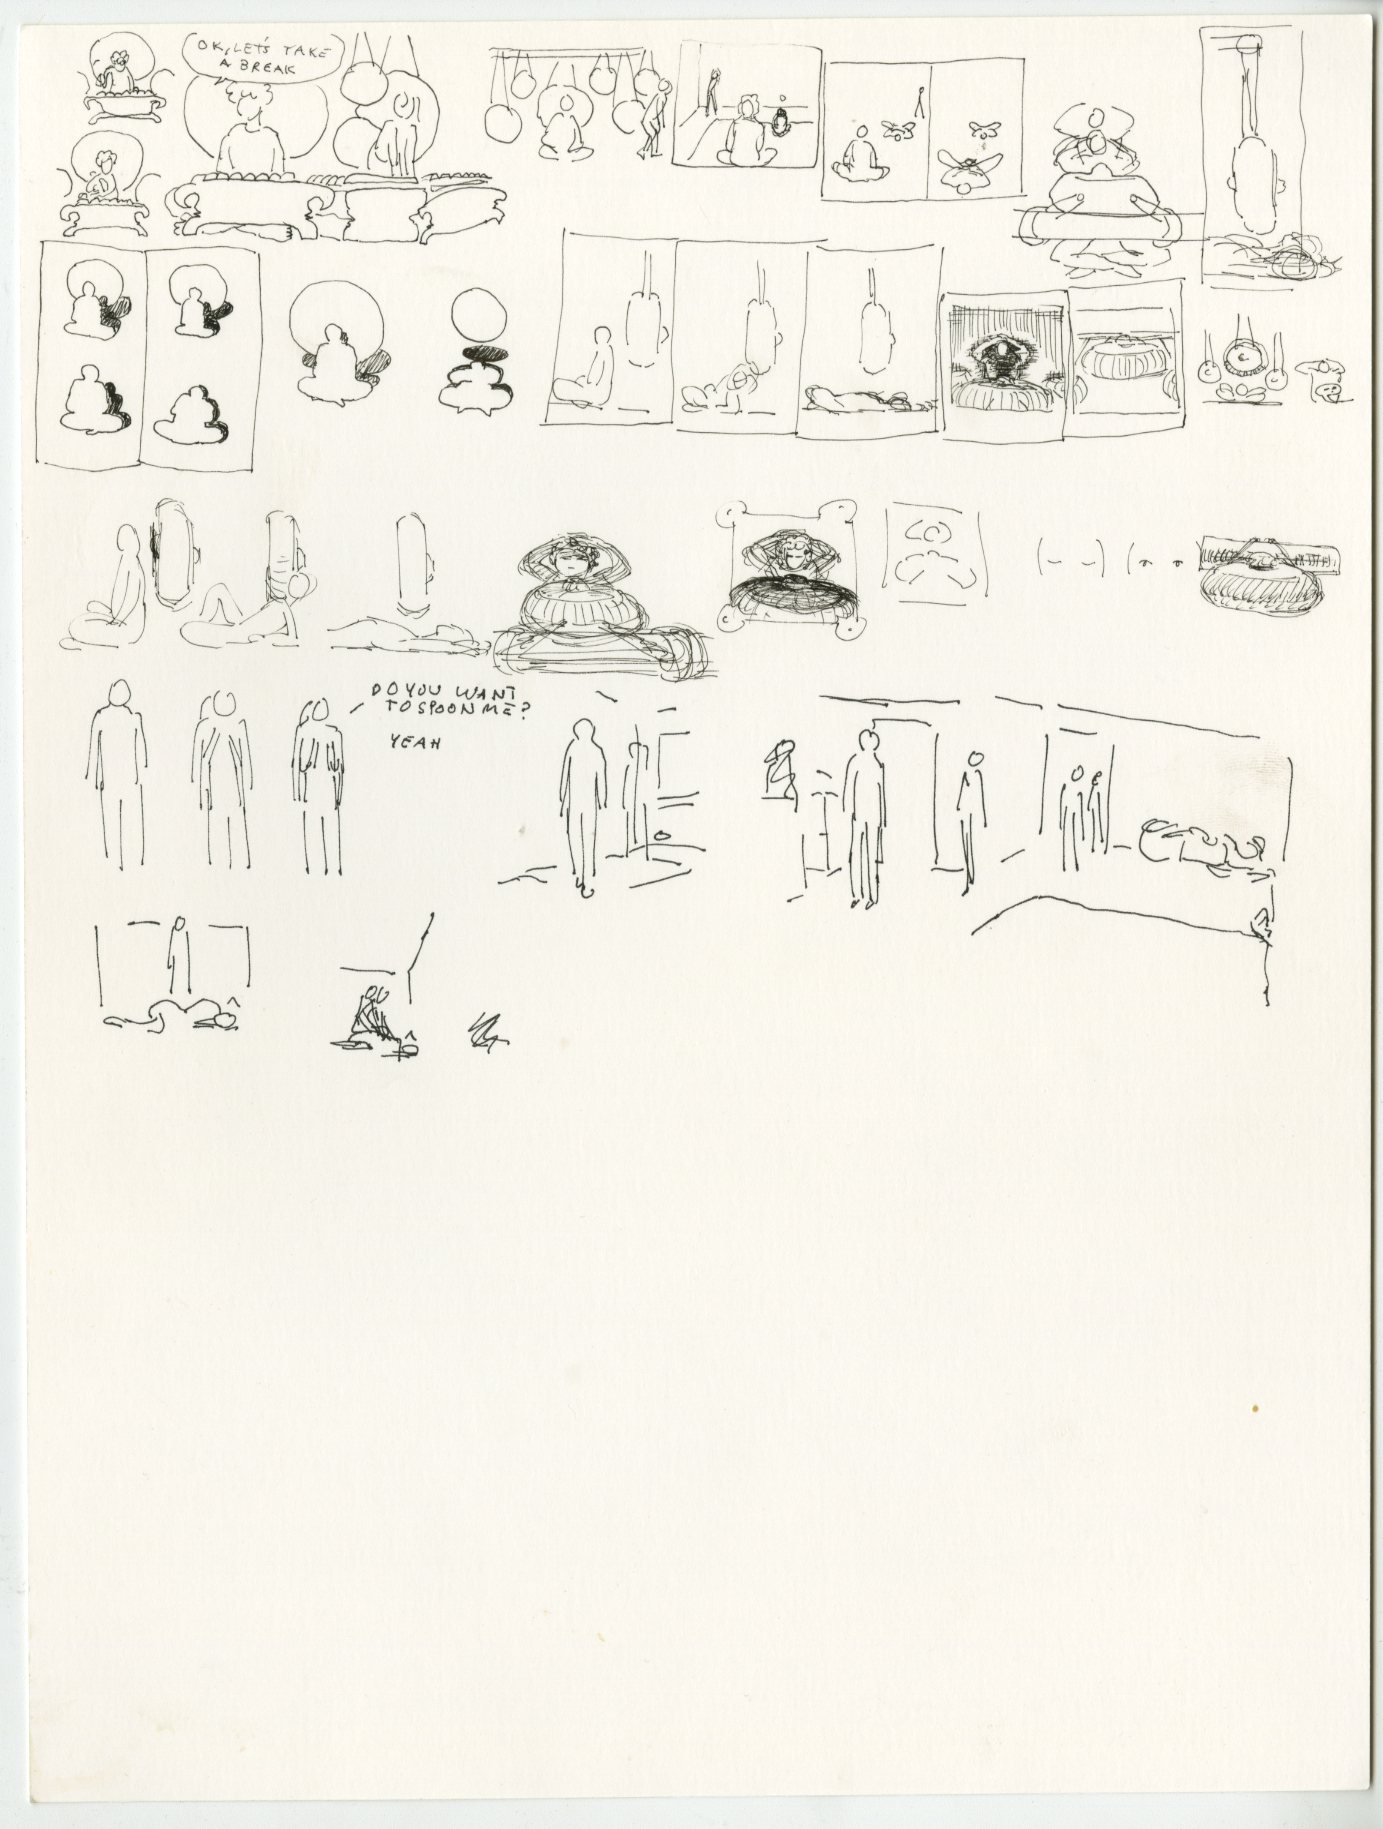 OK, LET'S TAKE
A BREAK
DO YOU WANT
TO SPOON ME?
YEAH